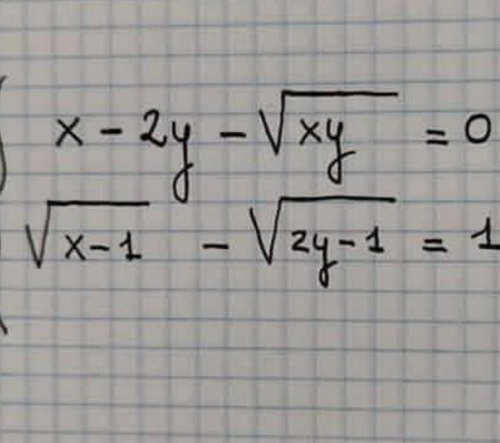 x - 2y - √xy = 0
√x-1 - √2y-1 = 1